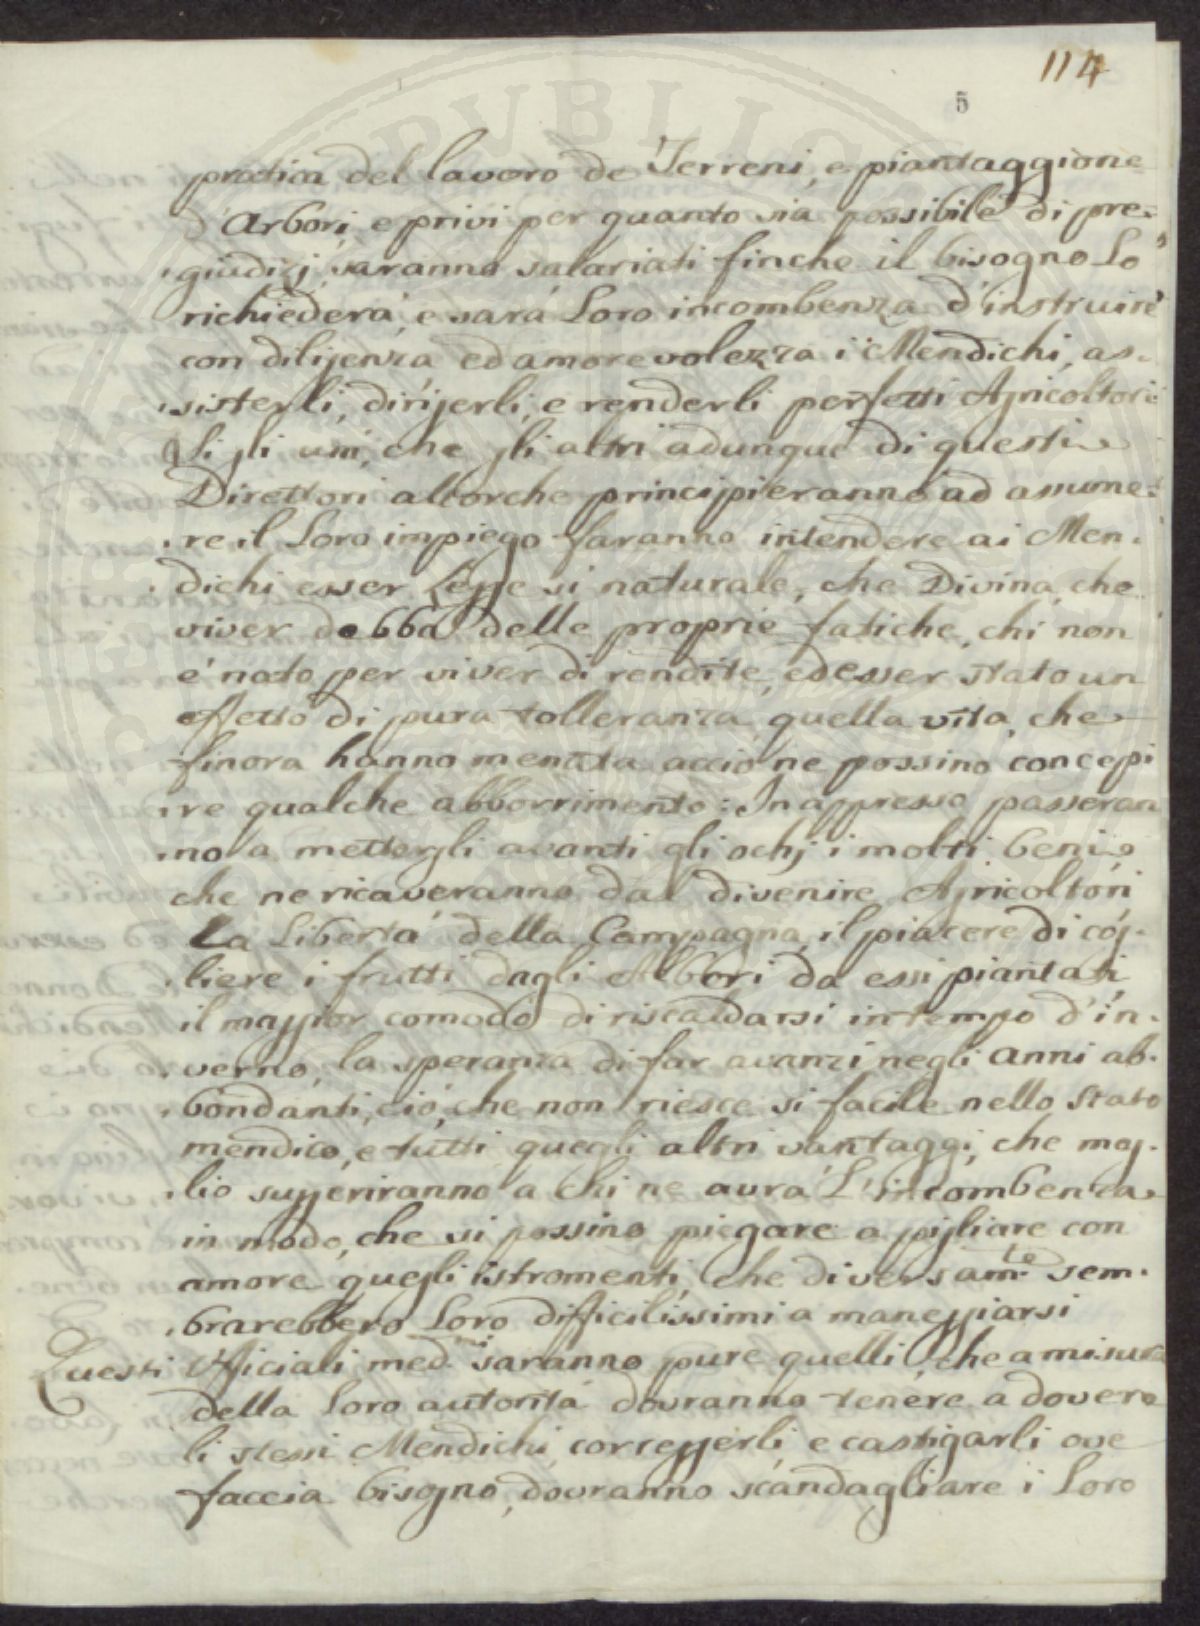 114
5
pratica del lavoro de Terreni, e piantaggione
d'Arbori, e privi per quanto sia possibile di pre-
giudizj, saranno salariati finche il bisogno lo
richiederá, e sará Loro incombenza d'instruire
con dilijenza ed amorevolezza i Mendichi, as-
sisterli, dirijerli, e renderli perfetti Agricoltori
Si gli uni, che gli altri adunque di questi
Direttori allorche principieranno ad assume-
re il Loro impiego faranno intendere ai Men-
dichi esser Legge si naturale, che Divina, che
viver debba delle proprie fatiche, chi non
é nato per viver di rendite, ed esser stato un
effetto di pura tolleranza quella vita, che
finora hanno menata accio ne possino concepi
re qualche abborrimento: In appresso passeran
no a mettergli avanti gli ochj i molti beni
che ne ricaveranno dal divenire Agricoltori
La Libertá della Campagna, il piacere di cój-
liere i frutti dagli Alberi da essi piantati,
il maggior comodo di riscaldarsi in tempo d'in-
verno, la speranza di far avanzi negli anni ab-
bondanti, ció, che non riesce si facile nello stato
mendico, e tutti quegli altri vantaggi, che mej-
lio suggeriranno a chi ne avrá L'incombenza
in modo, che si possino piegare a pigliare con
amore quegli istromenti, che diversam.te sem-
brarebbero Loro difficilissimi a maneggiarsi
Questi Officiali med.mi saranno pure quelli, che a misura
della Loro autoritá dovranno tenére a dovere
li stessi Mendichi, correggerli e castigarli ove
faccia bisogno, dovranno scandagliare i Loro
PUBLIC